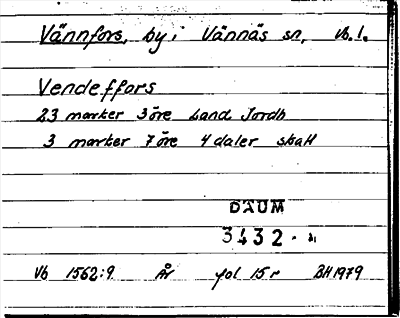 Vännfors, by i Vännäs sn, Vb. l.
Vendeffors
23 marker 3 öre Land Jordh
3 marker 7 öre 4 daler skatt
DAUM
3432
Vb 1562:9 ÅR fol 15 r BH 1979